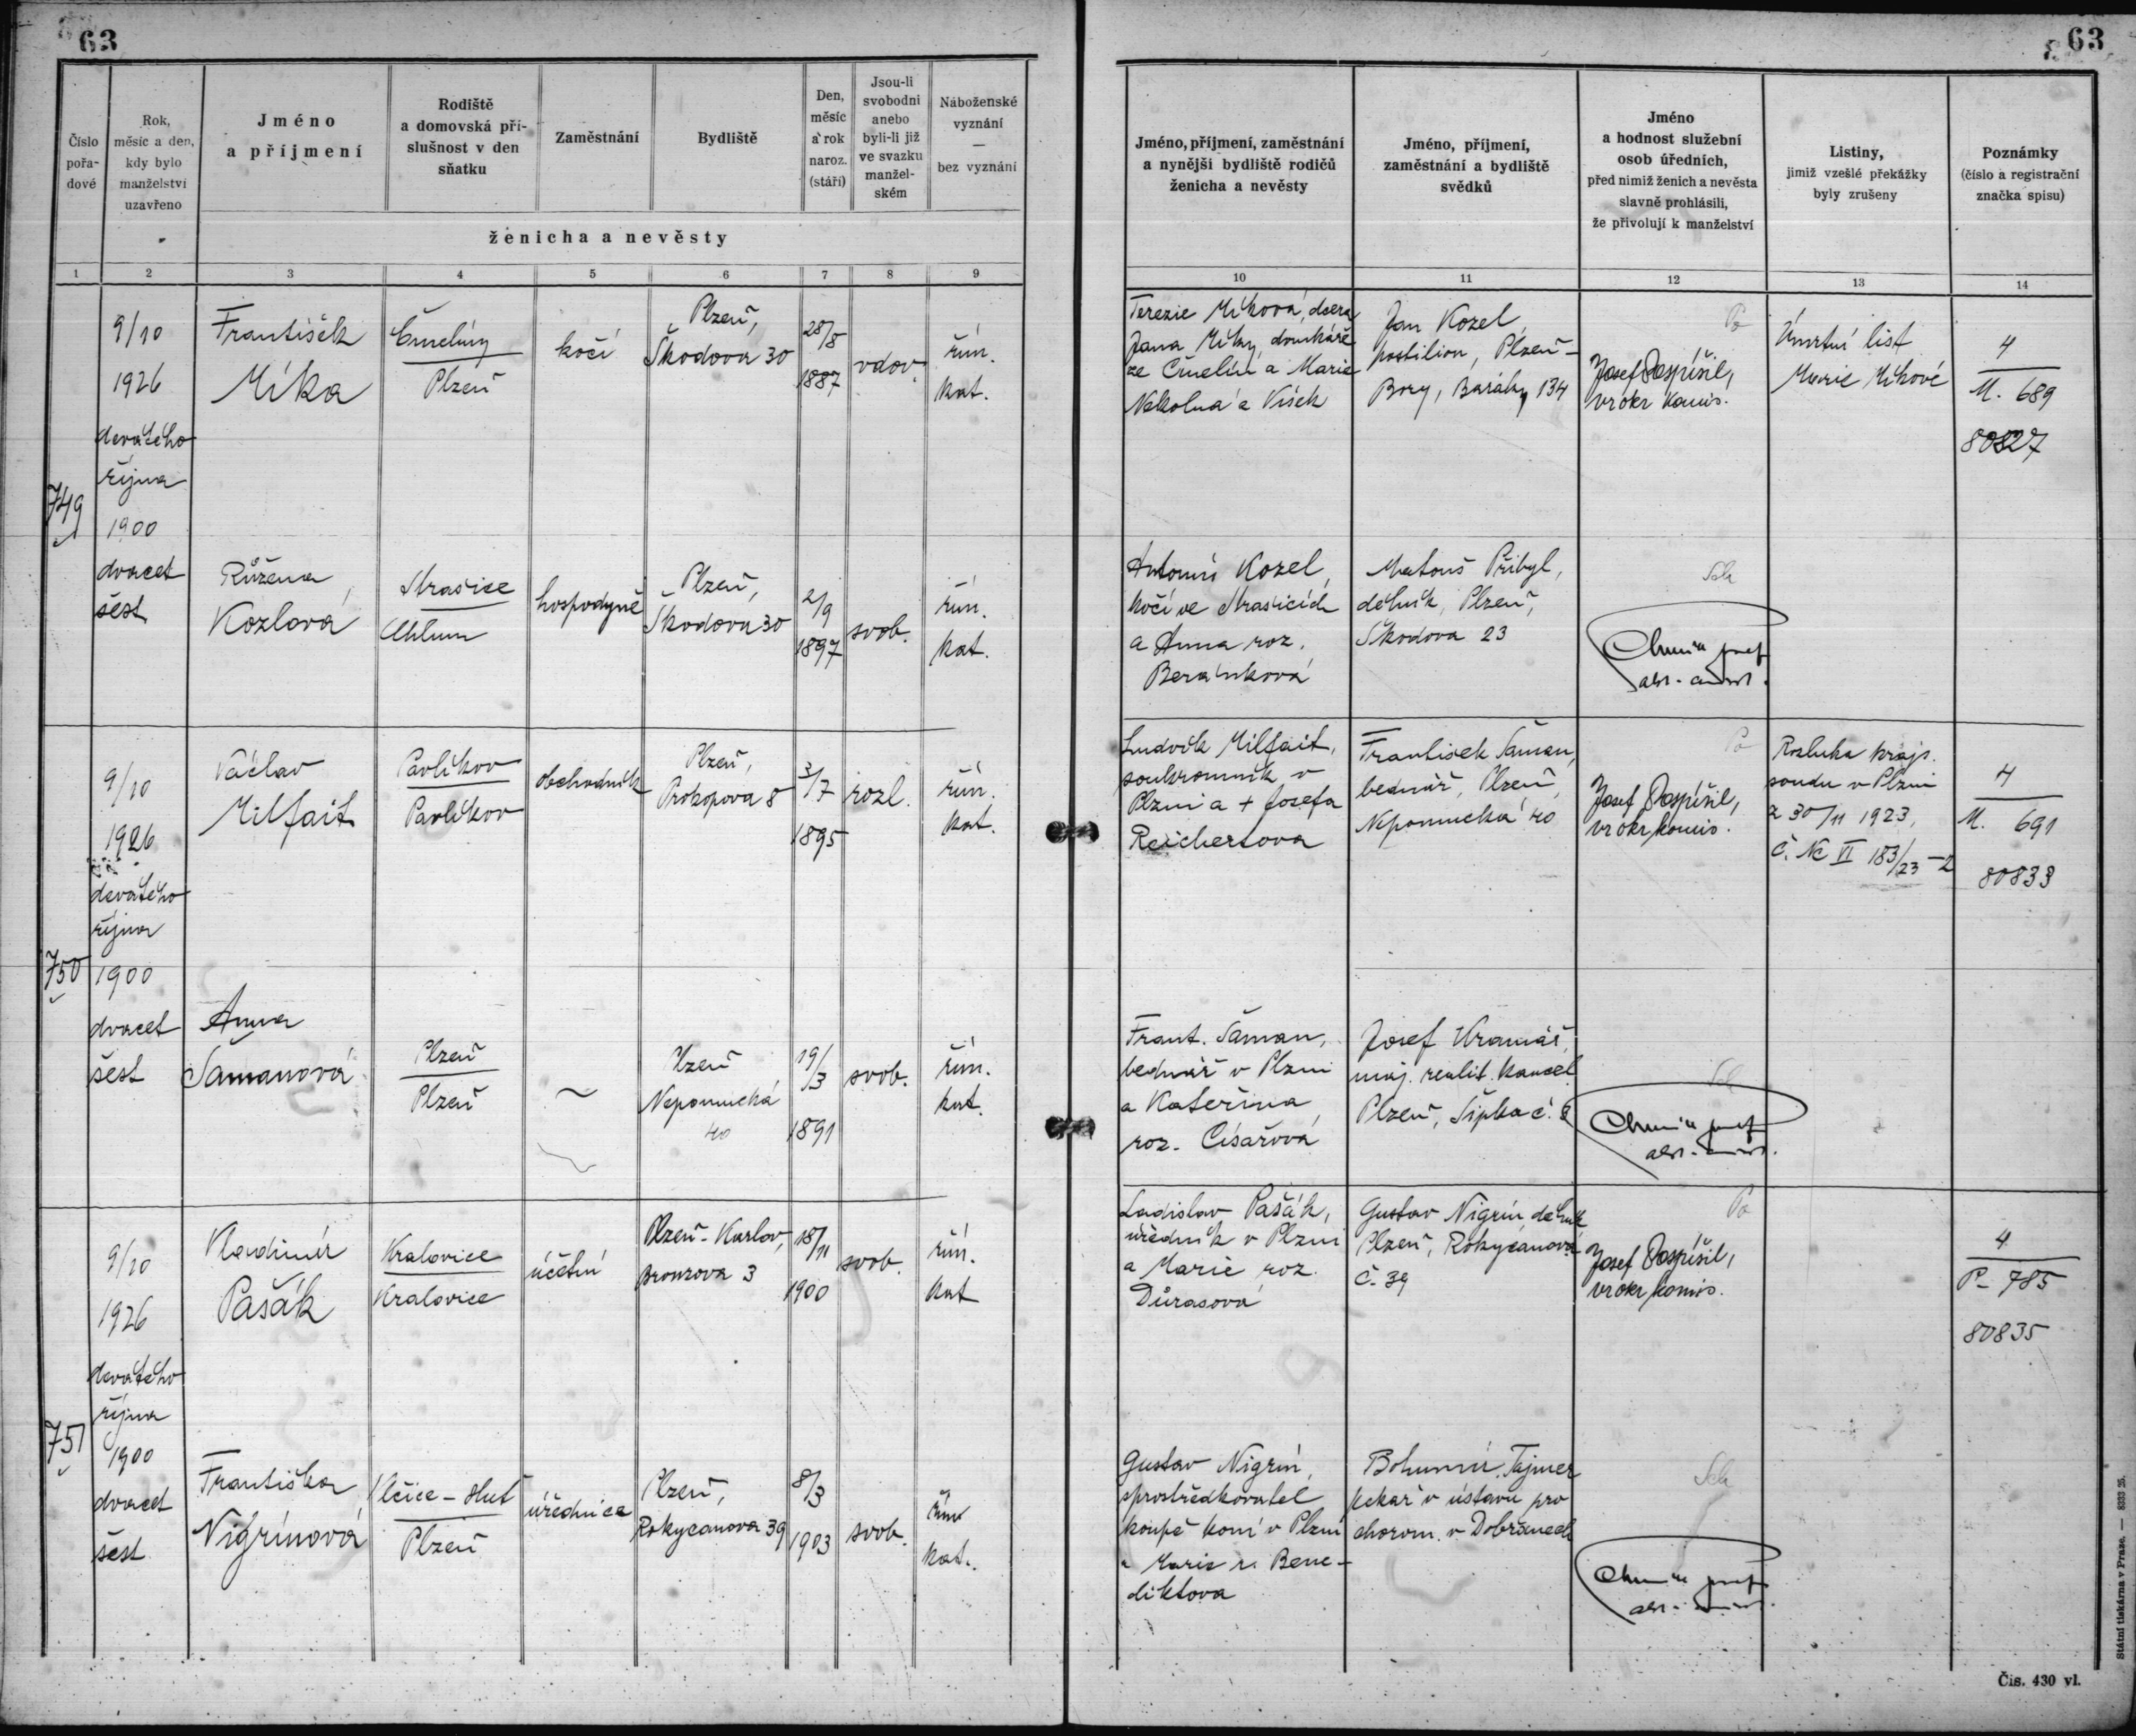 63
63
Číslo
pořa-
dové
Rok,
měsíc a den,
kdy bylo
manželství
uzavřeno
Jméno
a příjmení
Rodiště
a domovská pří-
slušnost v den
sňatku
Zaměstnání
Bydliště
Den,
měsíc
a rok
naroz.
(stáří)
Jsou-li
svobodni
anebo
byli-li již
ve svazku
manžel-
ském
Náboženské
vyznání
—
bez vyznání
ženicha a nevěsty
Jméno, příjmení, zaměstnání
a nynější bydliště rodičů
ženicha a nevěsty
Jméno, příjmení,
zaměstnání a bydliště
svědků
Jméno
a hodnost služební
osob úředních,
před nimiž ženich a nevěsta
slavně prohlásili,
že přivolují k manželství
Listiny,
jimiž vzešlé překážky
byly zrušeny
Poznámky
(číslo a registrační
značka spisu)
1 2 3 4 5 6 7 8 9 10 11 12 13 14
749
9/10
1926
devátého
října
1900
dvacet
šest
František
Míka
Čmelíny
Plzeň
kočí
Plzeň,
Škodova 30
28/8
1887
vdov.
řím.
kat.
Terezie Míková, dcera
Jana Míky, domkáře
ze Čmelín a Marie
Jan Kozel,
postilion, Plzeň –
Bory, Baráky 134
Po
Josef Pospíšil,
vr okr komis.
Úmrtní list
Marie Míkové
4
M. 689
80827
Růžena
Kozlová
Strašice
Chlum
hospodyně
Plzeň,
Škodova 30
2/9
1897
svob.
řím.
kat.
Antonín Kozel,
kočí ve Strašicích
a Anna roz.
Beránková
Matouš Přibyl,
dělník, Plzeň,
Škodova 23
750
9/10
1926
devátého
října
1900
dvacet
šest
Václav
Milfait
Pavlíkov
Pavlíkov
obchodník
Plzeň,
Prokopova 8
3/7
1895
rozl.
řím.
kat.
Ludvík Milfait,
soukromník v
Plzni a + Josefa
Reichertova
František Šaman,
bednář, Plzeň,
Nepomucká 40
Po
Josef Pospíšil,
vr okr komis.
Rozluka krajs.
soudu v Plzni
z 30/11 1923,
č. Nc VI 183/23 –2
4
M. 691
80833
Anna
Šamanová
Plzeň
Plzeň
~
Plzeň
Nepomucká
40
19/3
1891
svob.
řím.
kat.
Frant. Šaman,
bednář v Plzni
a Kateřina,
roz. Císařová
Josef Kramář,
maj. realit. kancel.
Plzeň, Šipka č. 2
751
9/10
1926
devátého
října
1900
dvacet
šest
Vladimír
Pašák
Kralovice
Kralovice
účetní
Plzeň - Karlov,
Bronzova 3
18/11
1900
svob.
řím.
kat
Ladislav Pašák,
úředník v Plzni
a Marie roz.
Důrasová
Gustav Nigrin dělník
Plzeň, Rokycanova
č. 39
Po
Josef Pospíšil,
vr okr komis.
4
P – 785
80835
Františka
Nigrínová
Plzeň
úřednice
Plzeň,
Rokycanova 39
8/3
1903
svob.
řím
kat.
Gustav Nigrin,
sprostředkovatel
koupě koní v Plzni
a Marie r. Bene-
diktova
Bohumír Tajmer
pekař v ústavu pro
chorom. v Dobřanech
Státní tiskárna v Praze. — 8333 25.
Čís. 430 vl.